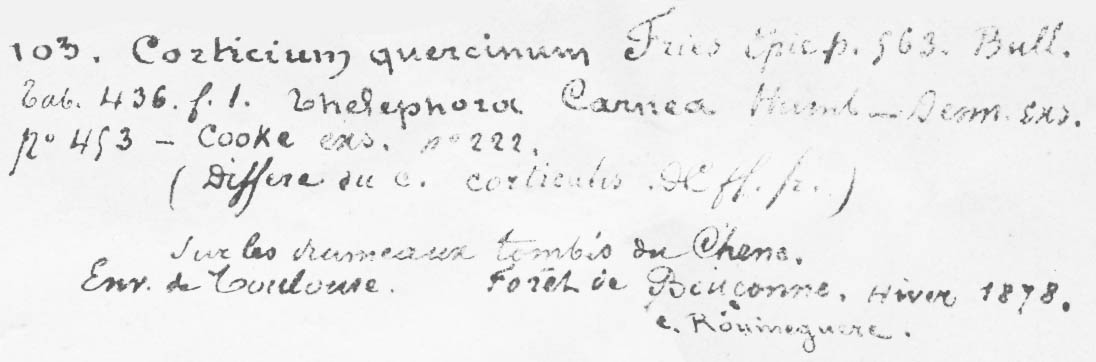 103. Corticium quercinum Fries Epic p. 563. Bull.
Tab. 436. f. 1. Thelephora Carnea Humb — Desm. exs.
no 453 — Cooke exs. no 222.
(Differe du c. corticalis. DC ff. fr.)
Sur les rameaux tombés du Chene.
Env. de Toulouse. Forêt de Bouconne. Hiver 1878.
C. Roumeguere.